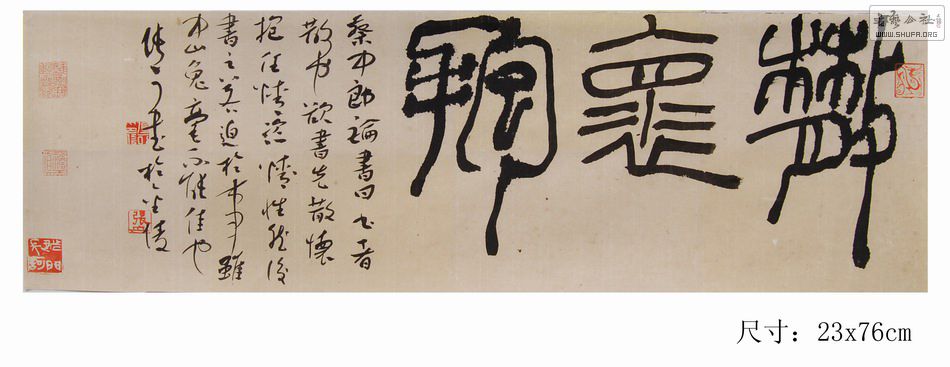 书艺公社
WWW.SHUFA.ORG
散懷
蔡中郎論書曰書者
散也欲書先散懷
抱任情恣情性然後
書之若迫於事雖
中山兔毫不能佳也
書於金陵
尺寸：23x76cm